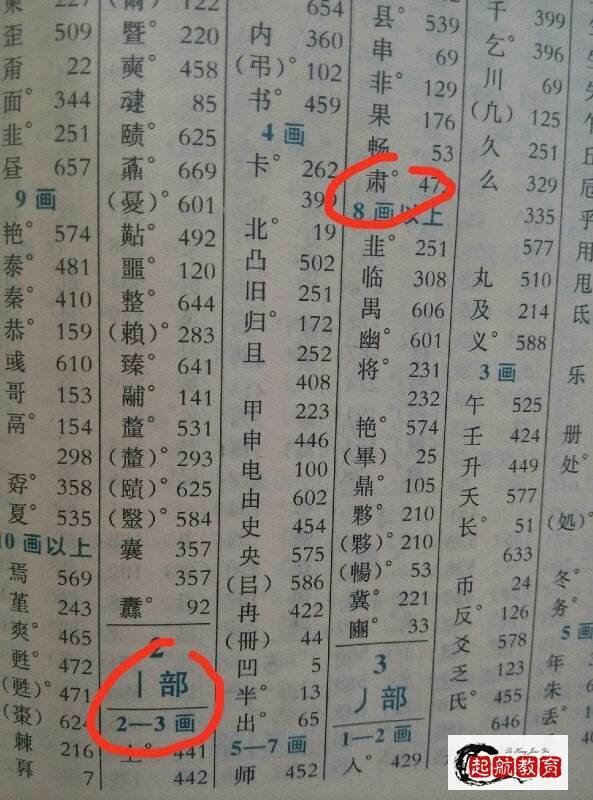 歪 509
甭 22
面° 344
韭° 251
昼 657
9画
艳° 574
泰° 481
秦° 410
恭° 159
彧 610
哥 153
鬲° 154
298
孬° 358
夏° 535
10画以上
焉 569
堇 243
爽° 465
甦° 472
(甦)° 471
(棗)
棘 216
7
122
暨° 220
奭° 458
85
赜° 625
鼒° 669
(憂)° 601
492
噩° 120
整° 644
(賴)° 283
臻° 641
翮° 141
釐° 531
(釐)° 293
(賾)° 625
(毉)° 584
囊 357
357
纛° 92
2
丨部
2—3画
上° 441
442
654
内 360
(弔)° 102
书° 459
4画
卡° 262
北° 19
凸 502
旧 251
归° 172
且 252
408
甲 223
申 446
电 100
由 602
史 454
央 575
(㠯) 586
冉 422
(冊) 44
凹 5
半° 13
出° 65
5—7画
师 452
县° 539
串 69
非° 129
果 176
畅 53
肃°
8画以上
韭° 251
临 308
禺 606
幽° 601
将° 231
232
艳° 574
(畢) 25
鼎° 105
夥° 210
(夥)° 210
(暢)° 53
冀° 221
豳° 33
3
丿部
1—2画
入° 429
千 399
乞° 396
川 69
(凣) 125
久 251
么 329
335
577
丸 510
及 214
义° 588
3画
午 525
壬 424
升 449
夭 577
长° 51
633
币 24
反° 126
爻 578
乏 123
氏° 455
646
乎
用
甩
氐
乐
册
处°
(処)°
冬°
务°
5画
年
朱
丢°
起航教育